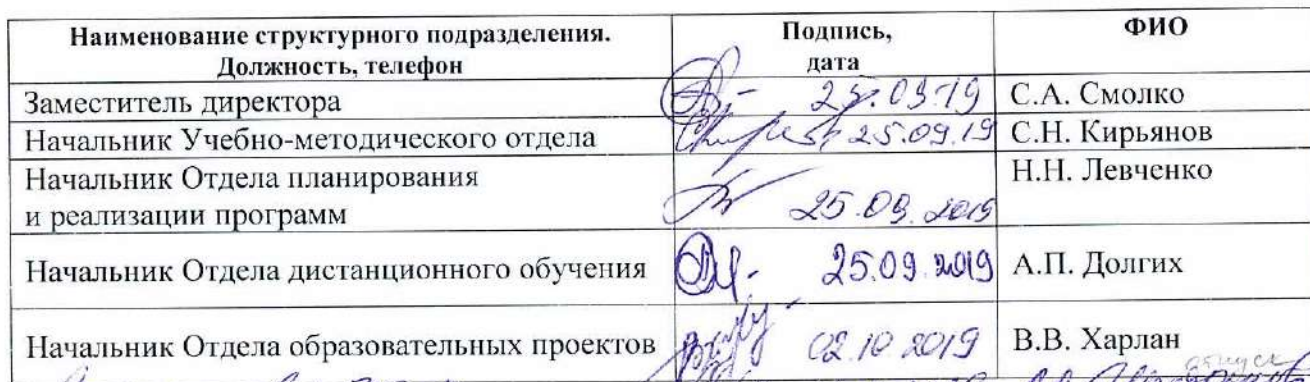 Наименование структурного подразделения.
Должность, телефон
Подпись,
дата
ФИО
Заместитель директора
.09.19
С.А. Смолко
Начальник Учебно-методического отдела
25.09.19
С.Н. Кирьянов
Начальник Отдела планирования
и реализации программ
25.09.2019
Н.Н. Левченко
Начальник Отдела дистанционного обучения
25.09.2019
А.П. Долгих
Начальник Отдела образовательных проектов
02.10.2019
В.В. Харлан
отпуск